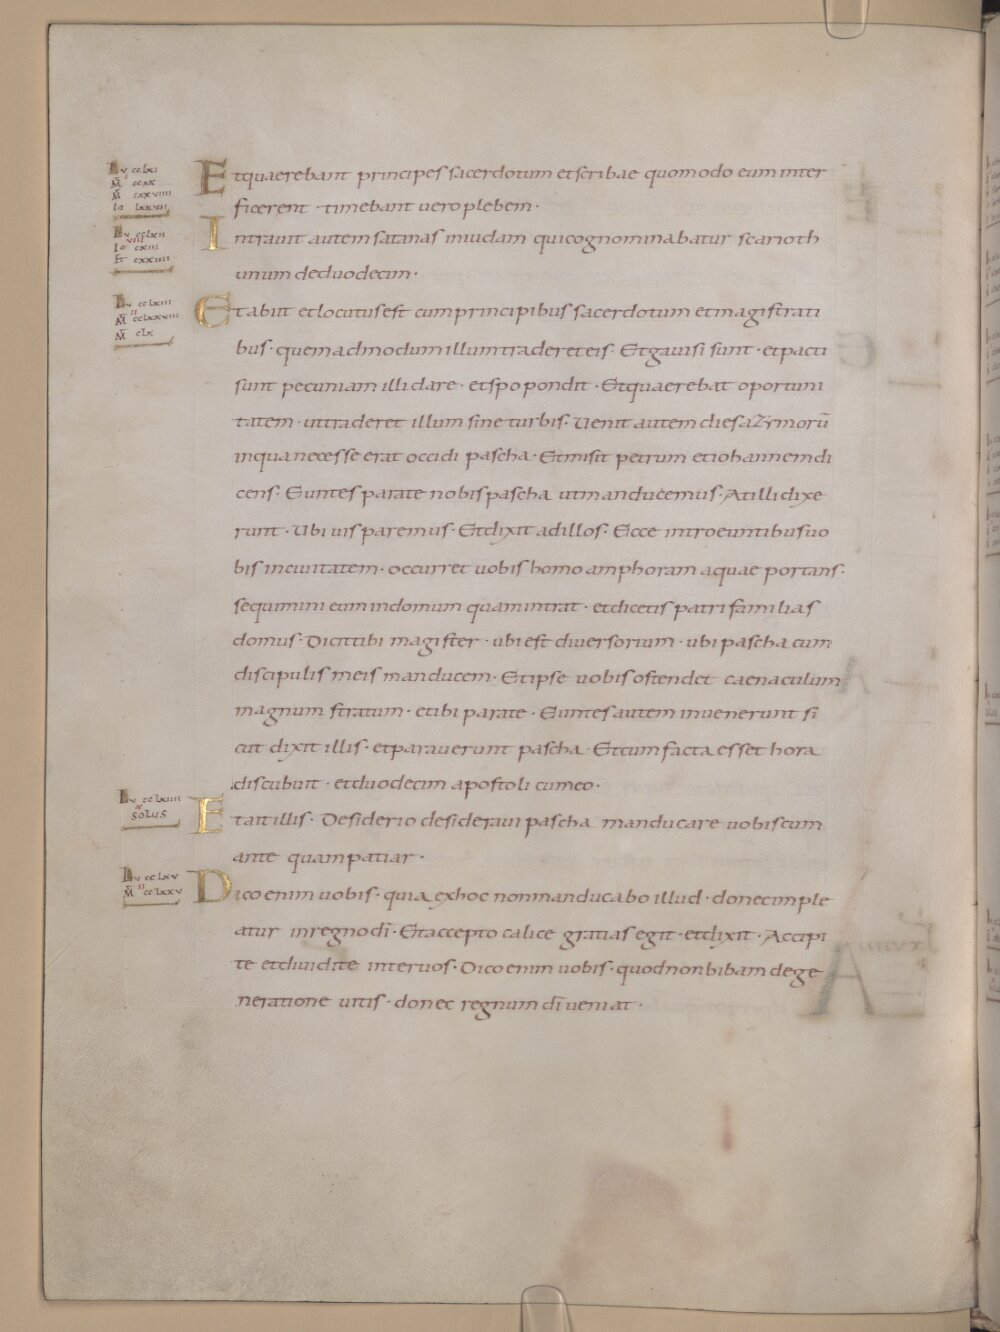 Lu cclxi
M ccxx
M cxxviiii
Io lxxvii
Et quaerebant principes sacerdotum et scribae quomodo eum inter
ficerent · timebant uero plebem ·
Lu cclxii
viiii
Io cxiii
Et cxxiiii
Intrauit autem satanas in iudam qui cognominabatur scarioth
unum de duodecim ·
Lu cclxiii
M cclxxviii
M clx
Et abiit et locutus est cum principibus sacerdotum et magistrati
bus · quemadmodum illum traderet eis · Et gauisi sunt · et pacti
sunt pecuniam illi dare · et spopondit · Et quaerebat oportuni
tatem · ut traderet illum sine turbis · Uenit autem dies azymorū
in qua necesse erat occidi pascha · Et misit petrum et iohannem di
cens · Euntes parate nobis pascha ut manducemus · At illi dixe
runt · Ubi uis paremus · Et dixit ad illos · Ecce introeuntibus uo
bis in ciuitatem · occurret uobis homo amphoram aquae portans ·
sequimini eum in domum quam intrat · et dicetis patri familias
domus · Dicit tibi magister · ubi est diuersorium · ubi pascha cum
discipulis meis manducem · Et ipse uobis ostendet caenaculum
magnum stratum · et ibi parate · Euntes autem inuenerunt si
cut dixit illis · et parauerunt pascha · Et cum facta esset hora
discubuit · et duodecim apostoli cum eo ·
Lu cclxiiii
x
SOLUS
Et ait illis · Desiderio desideraui pascha manducare uobiscum
ante quam patiar ·
Lu cclxv
ii
M cclxxv
Dico enim uobis · quia ex hoc non manducabo illud · donec imple
atur in regno dī · Et accepto calice gratias egit · et dixit · Accipi
te et diuidite inter uos · Dico enim uobis · quod non bibam de ge
neratione uitis · donec regnum dī ueniat ·